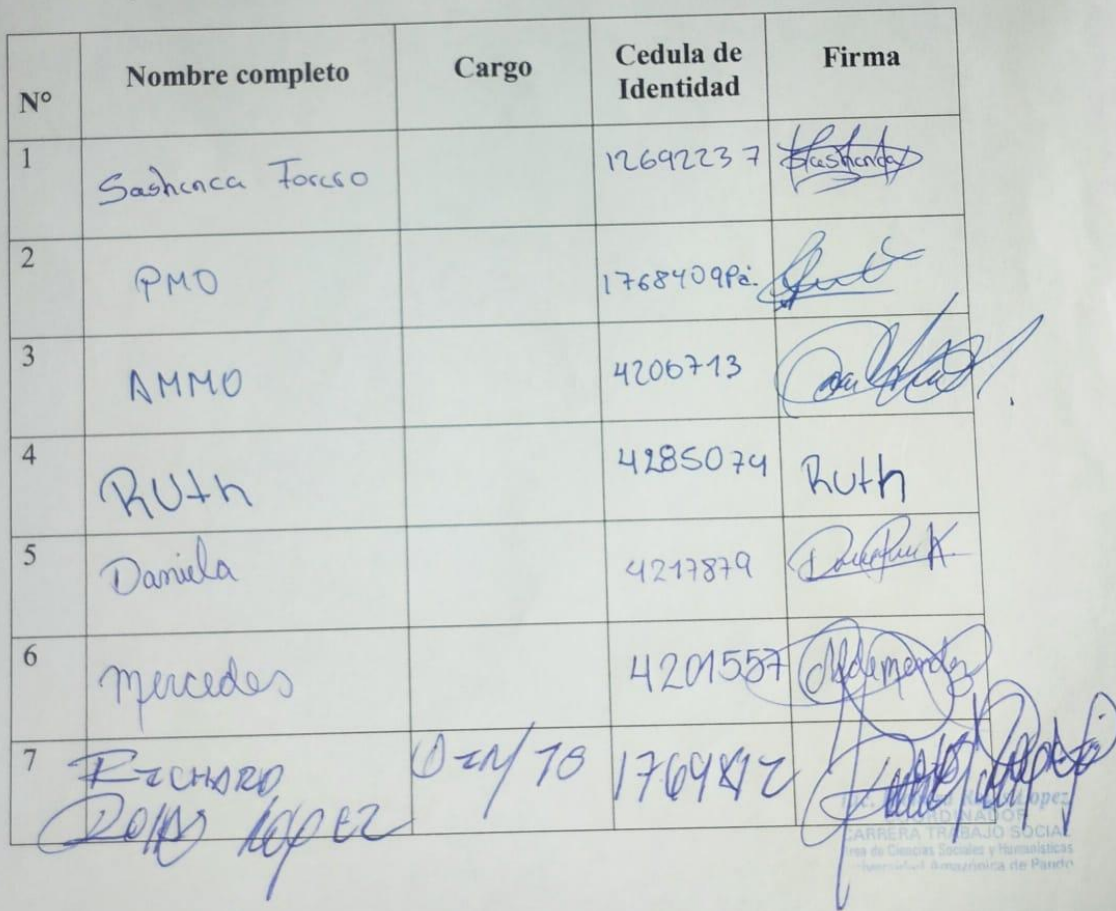 N° Nombre completo Cargo Cedula de Identidad Firma
1 Sashenca Forero 12692237 Sashenca
2 PMO 1768409Pa.
3 AMMO 4206713
4 RUth 4285074 Ruth
5 Daniela 4217879
6 mercedes 4201557
7 RICHARD López
COORDINADOR
CARRERA TRABAJO SOCIAL
Area de Ciencias Sociales y Humanísticas
Universidad Amazónica de Pando